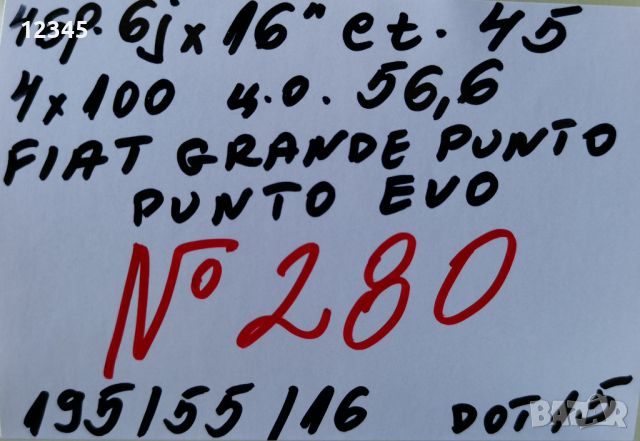 12345
4бр. 6jx16" et. 45
4x100 ц.о. 56,6
FIAT GRANDE PUNTO
PUNTO EVO
№280
195/55/16 DOT15
BAZAR